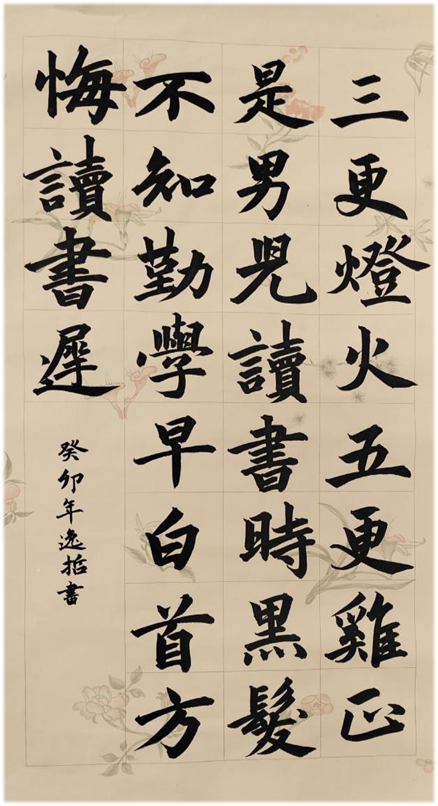 三更燈火五更雞正
是男兒讀書時黑髮
不知勤學早白首方
悔讀書遲
癸卯年逸哲書